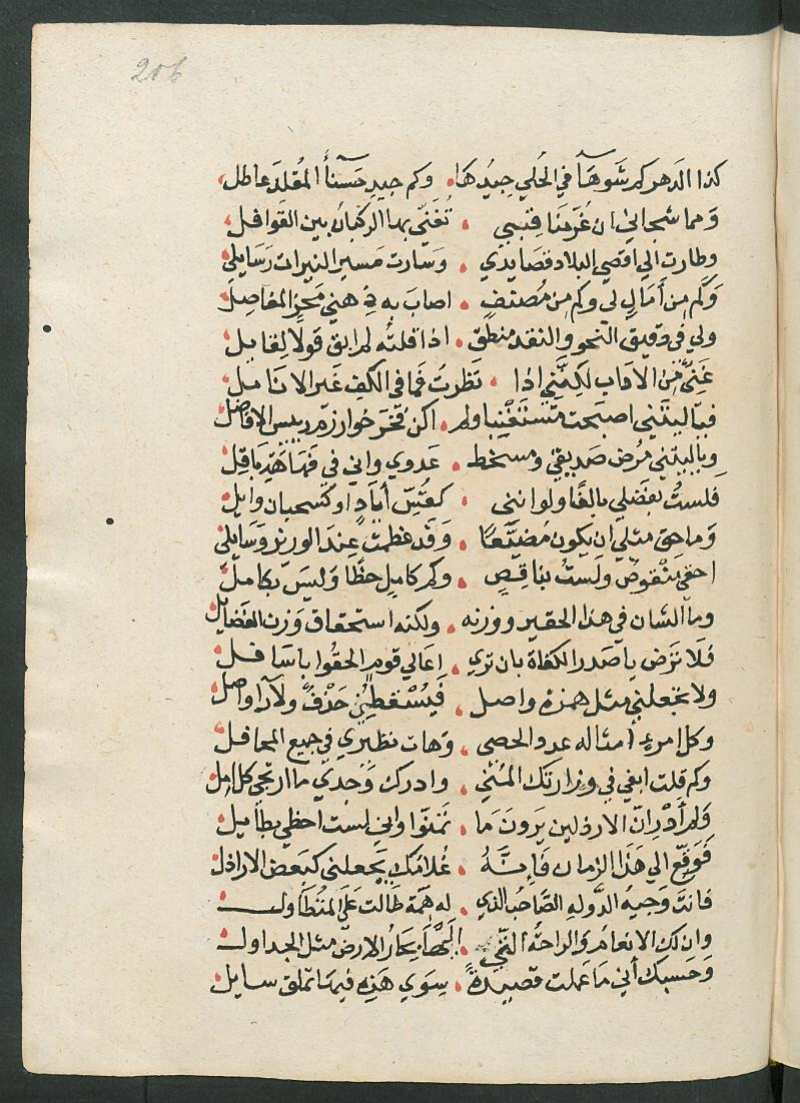 206
كذا الدهر كم شوهآ في الحلي جيدها . وكم جيد حسنآ المقلد عاطل
ومما شجاني ان غر مناقبي . تغني بها الركبان بين القوافل
وطارت الي اقصي البلاد قصايدي . وسارت مسير النيرات رسايلي
وكم من أمال لي وكم من مصنف . اصاب به ذهني محز المفاصل
ولي في دقيق النحو والنقد منطق . اذا قلته لم ابق قولا لقايل
غني من الاداب لكنني اذا . نظرت فما في الكف غير الانامل
فيا ليتني اصبحت مستغنيا ولم . اكن فخر خوارزم رييس الافاضل
ويا ليتني مرض صديقي ومسخط . عدوي واني في فهاهة باقل
فلست بفضلي بالغا ولو انني . كقس أياد او كسحبان وايل
وما حق مثلي ان يكون مضيعا . وقد عظمت عند الوزير وسايلي
احق بنقوص ولست بناقص . وكم كامل حظا وليس بكامل
وما الشان في هذا الحقير ووزنه . ولكنه استحقاق وزن الفضايل
فلا ترض يا صدر الكفاة بان تري . اعالي قوم الحقوا باسافل
ولا تجعلني مثل همزة واصل . فيسقطني حذف ولا را واصل
وكل امرء امثاله عدد الحصي . وهات نظيري في جميع المحافل
وكم قلت ابغي في وزارتك المني . وادرك وحدي ما ارتجي كل امل
ولم أدر ان الارذلين يرون ما . تمنوا واني لست احظي بطايل
فوقع الي هذا الزمان فانه . غلامك يجعلني كبعض الاراذل
فانت وجيه الدوله الصاحب الذي . له همة طالت علي المتطاول
وان لك الانعام والراحة التي . بحار الارض مثل الجداول
وحسبك أني ما عملت قصيدة . سوي هذه فيها تملق سايل